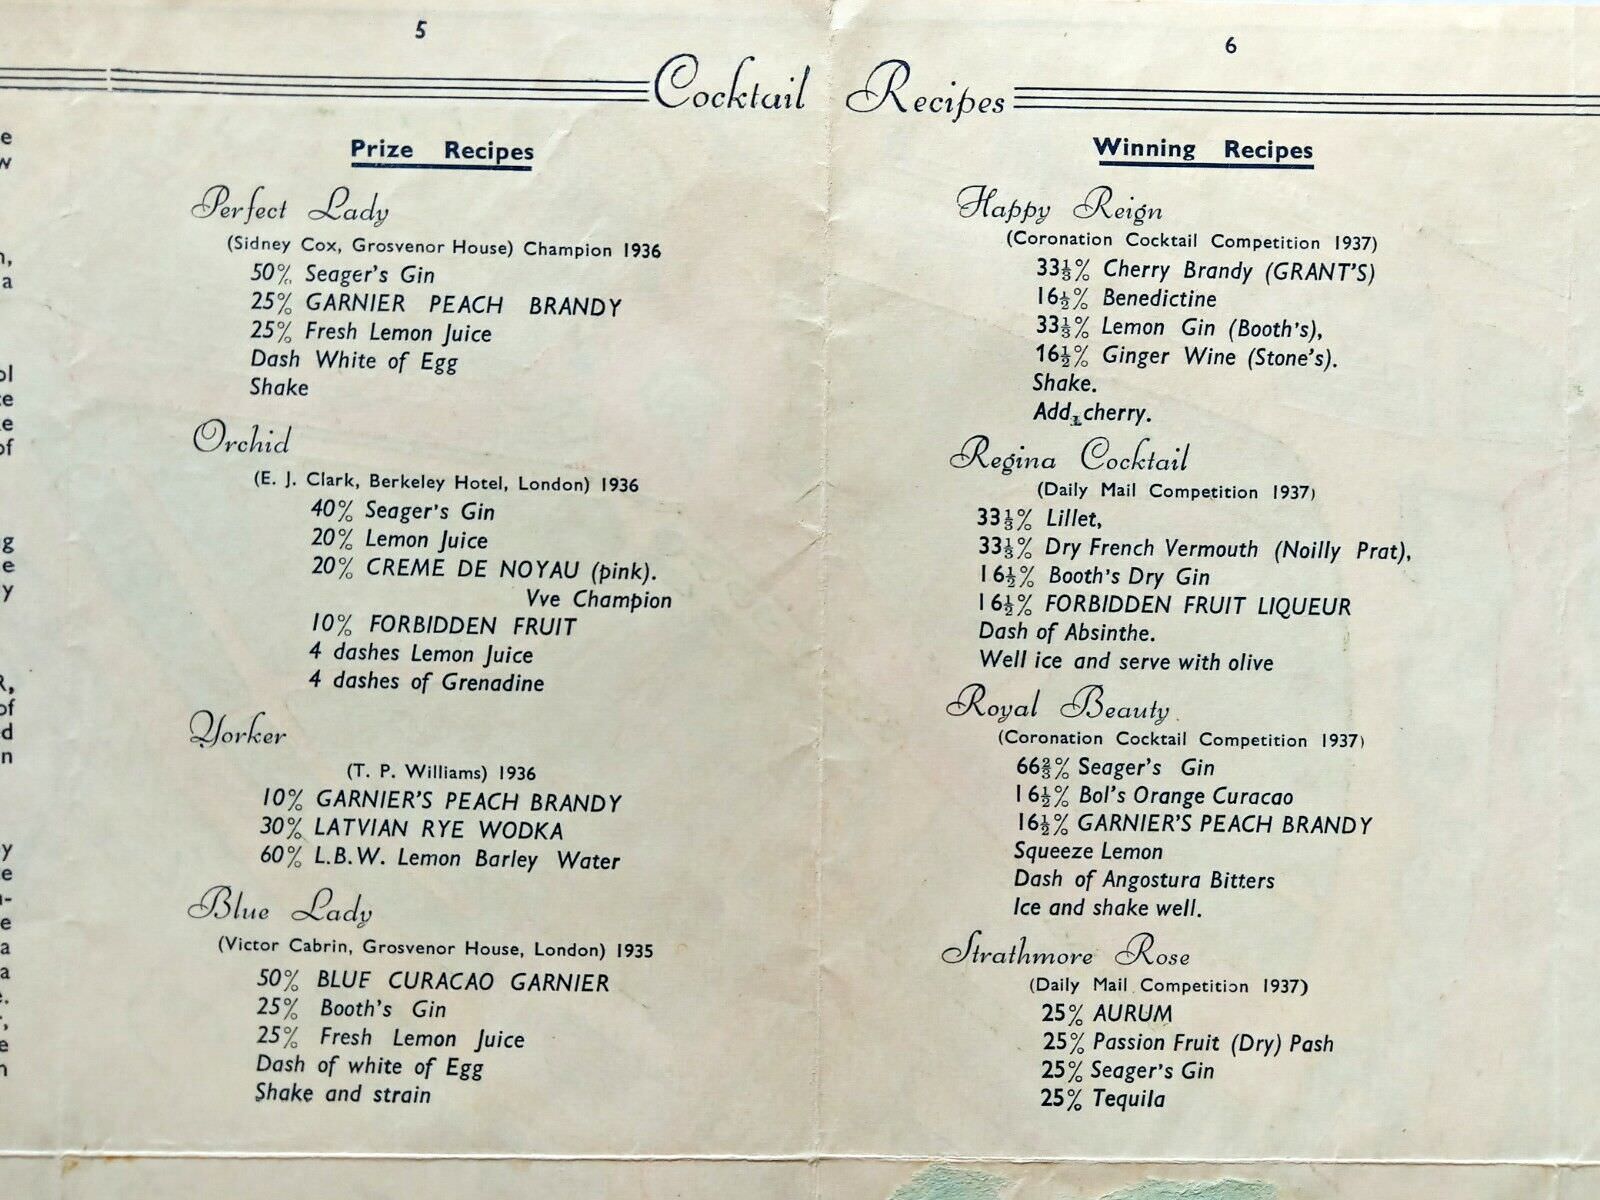 5
Cocktail
Prize Recipes
Perfect Lady
(Sidney Cox, Grosvenor House) Champion 1936
50% Seager's Gin
25% GARNIER PEACH BRANDY
25% Fresh Lemon Juice
Dash White of Egg
Shake
Orchid
(E. J. Clark, Berkeley Hotel, London) 1936
40% Seager's Gin
20% Lemon Juice
20% CREME DE NOYAU (pink).
Vve Champion
10% FORBIDDEN FRUIT
4 dashes Lemon Juice
4 dashes of Grenadine
Yorker
(T. P. Williams) 1936
10% GARNIER'S PEACH BRANDY
30% LATVIAN RYE WODKA
60% L.B.W. Lemon Barley Water
Blue Lady
(Victor Cabrin, Grosvenor House, London) 1935
50% BLUE CURACAO GARNIER
25% Booth's Gin
25% Fresh Lemon Juice
Dash of white of Egg
Shake and strain
6
Recipes
Winning Recipes
Happy Reign
(Coronation Cocktail Competition 1937)
33⅓% Cherry Brandy (GRANT'S)
16½% Benedictine
33⅓% Lemon Gin (Booth's),
16½% Ginger Wine (Stone's).
Shake.
Add cherry.
Regina Cocktail
(Daily Mail Competition 1937)
33⅓% Lillet,
33⅓% Dry French Vermouth (Noilly Prat),
16½% Booth's Dry Gin
16½% FORBIDDEN FRUIT LIQUEUR
Dash of Absinthe.
Well ice and serve with olive
Royal Beauty
(Coronation Cocktail Competition 1937)
66⅔% Seager's Gin
16½% Bol's Orange Curacao
16½% GARNIER'S PEACH BRANDY
Squeeze Lemon
Dash of Angostura Bitters
Ice and shake well.
Strathmore Rose
(Daily Mail Competition 1937)
25% AURUM
25% Passion Fruit (Dry) Pash
25% Seager's Gin
25% Tequila